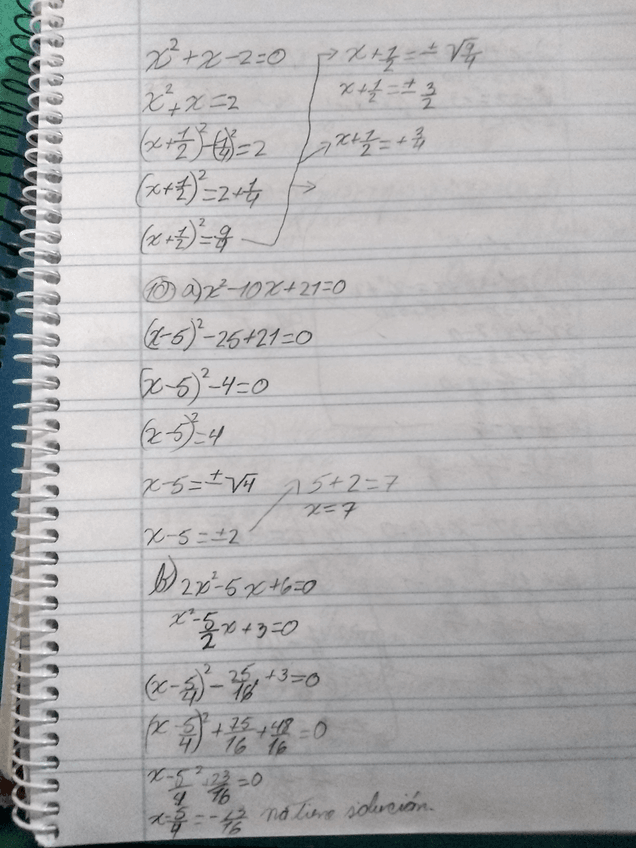 x² + x - 2 = 0
x² + x = 2
(x + 1/2)² - (1/4)² = 2
(x + 1/2)² = 2 + 1/4 →
(x + 1/2)² = 9/4
→ x + 1/2 = ± √9/4
x + 1/2 = ± 3/2
→ x + 1/2 = + 3/4
⑩ a) x² - 10x + 21 = 0
(x - 5)² - 25 + 21 = 0
(x - 5)² - 4 = 0
(x - 5)² = 4
x - 5 = ± √4
x - 5 = ± 2
→ 5 + 2 = 7
x = 7
b) 2x² - 5x + 6 = 0
x² - 5/2 x + 3 = 0
(x - 5/4)² - 25/16 + 3 = 0
(x - 5/4)² + 25/16 + 48/16 = 0
x - 5/4² 23/16 = 0
x - 5/4 = - 23/16 no tiene solución.